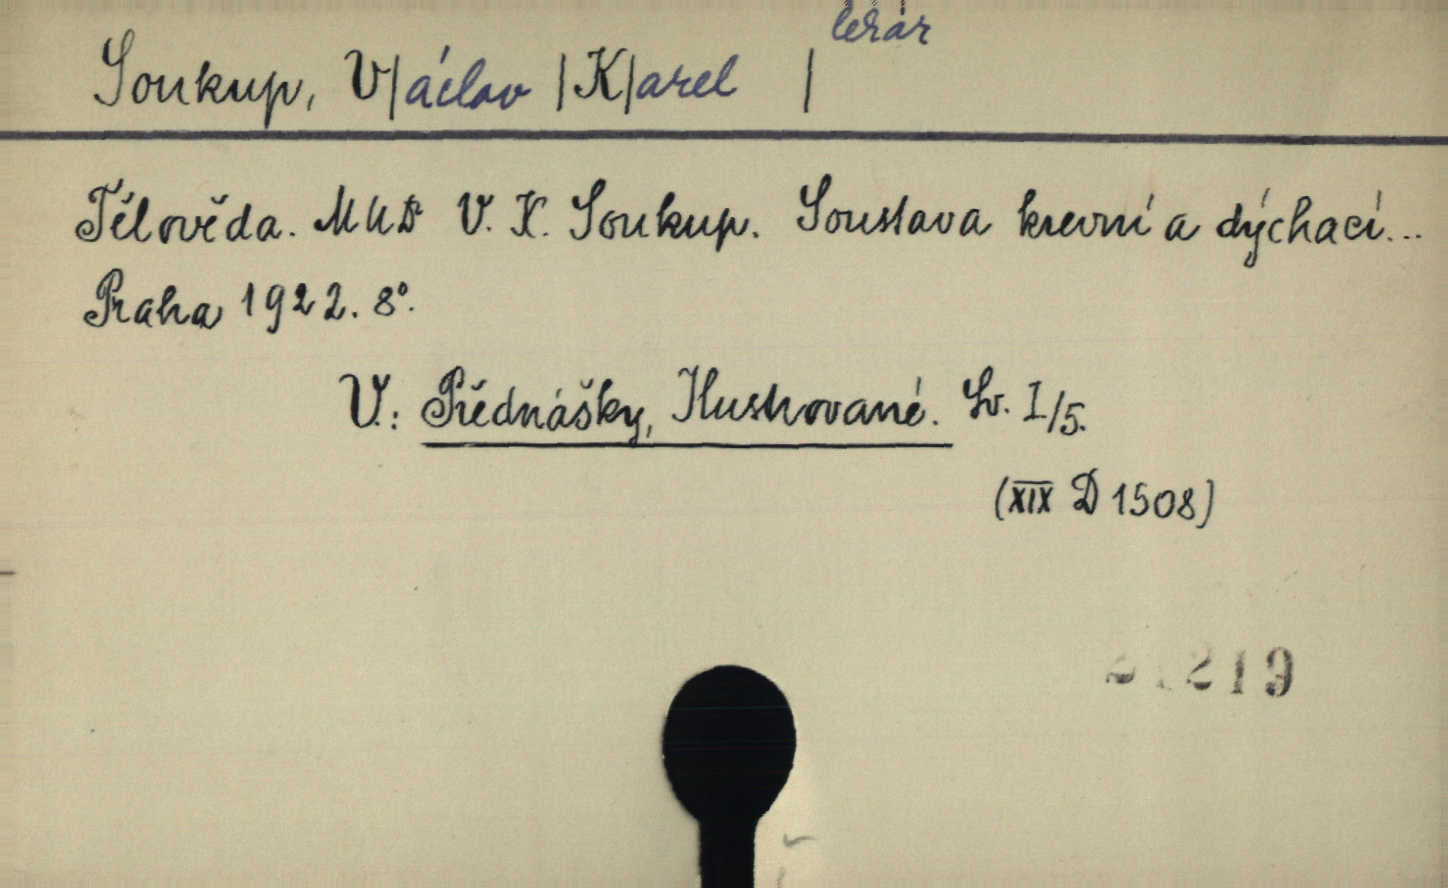 lékař
Soukup, V|áclav |K|arel |
Tělověda. MUDr V. K. Soukup. Soustava krevní a dýchací...
Praha 1922. 8°.
V.: Přednášky, Ilustrované. Sv. I/5.
(XIX D 1508)